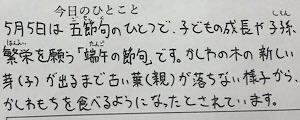 今日のひとこと
5月5日は 五節句のひとつで、子どもの成長や子孫しそん
繁栄はんえいを願う「端午たんごの節句」です。かしわの木の新しい
芽(子)が出るまで古い葉(親)が落ちない様子から、
かしわもちを食べるようになったとされています。